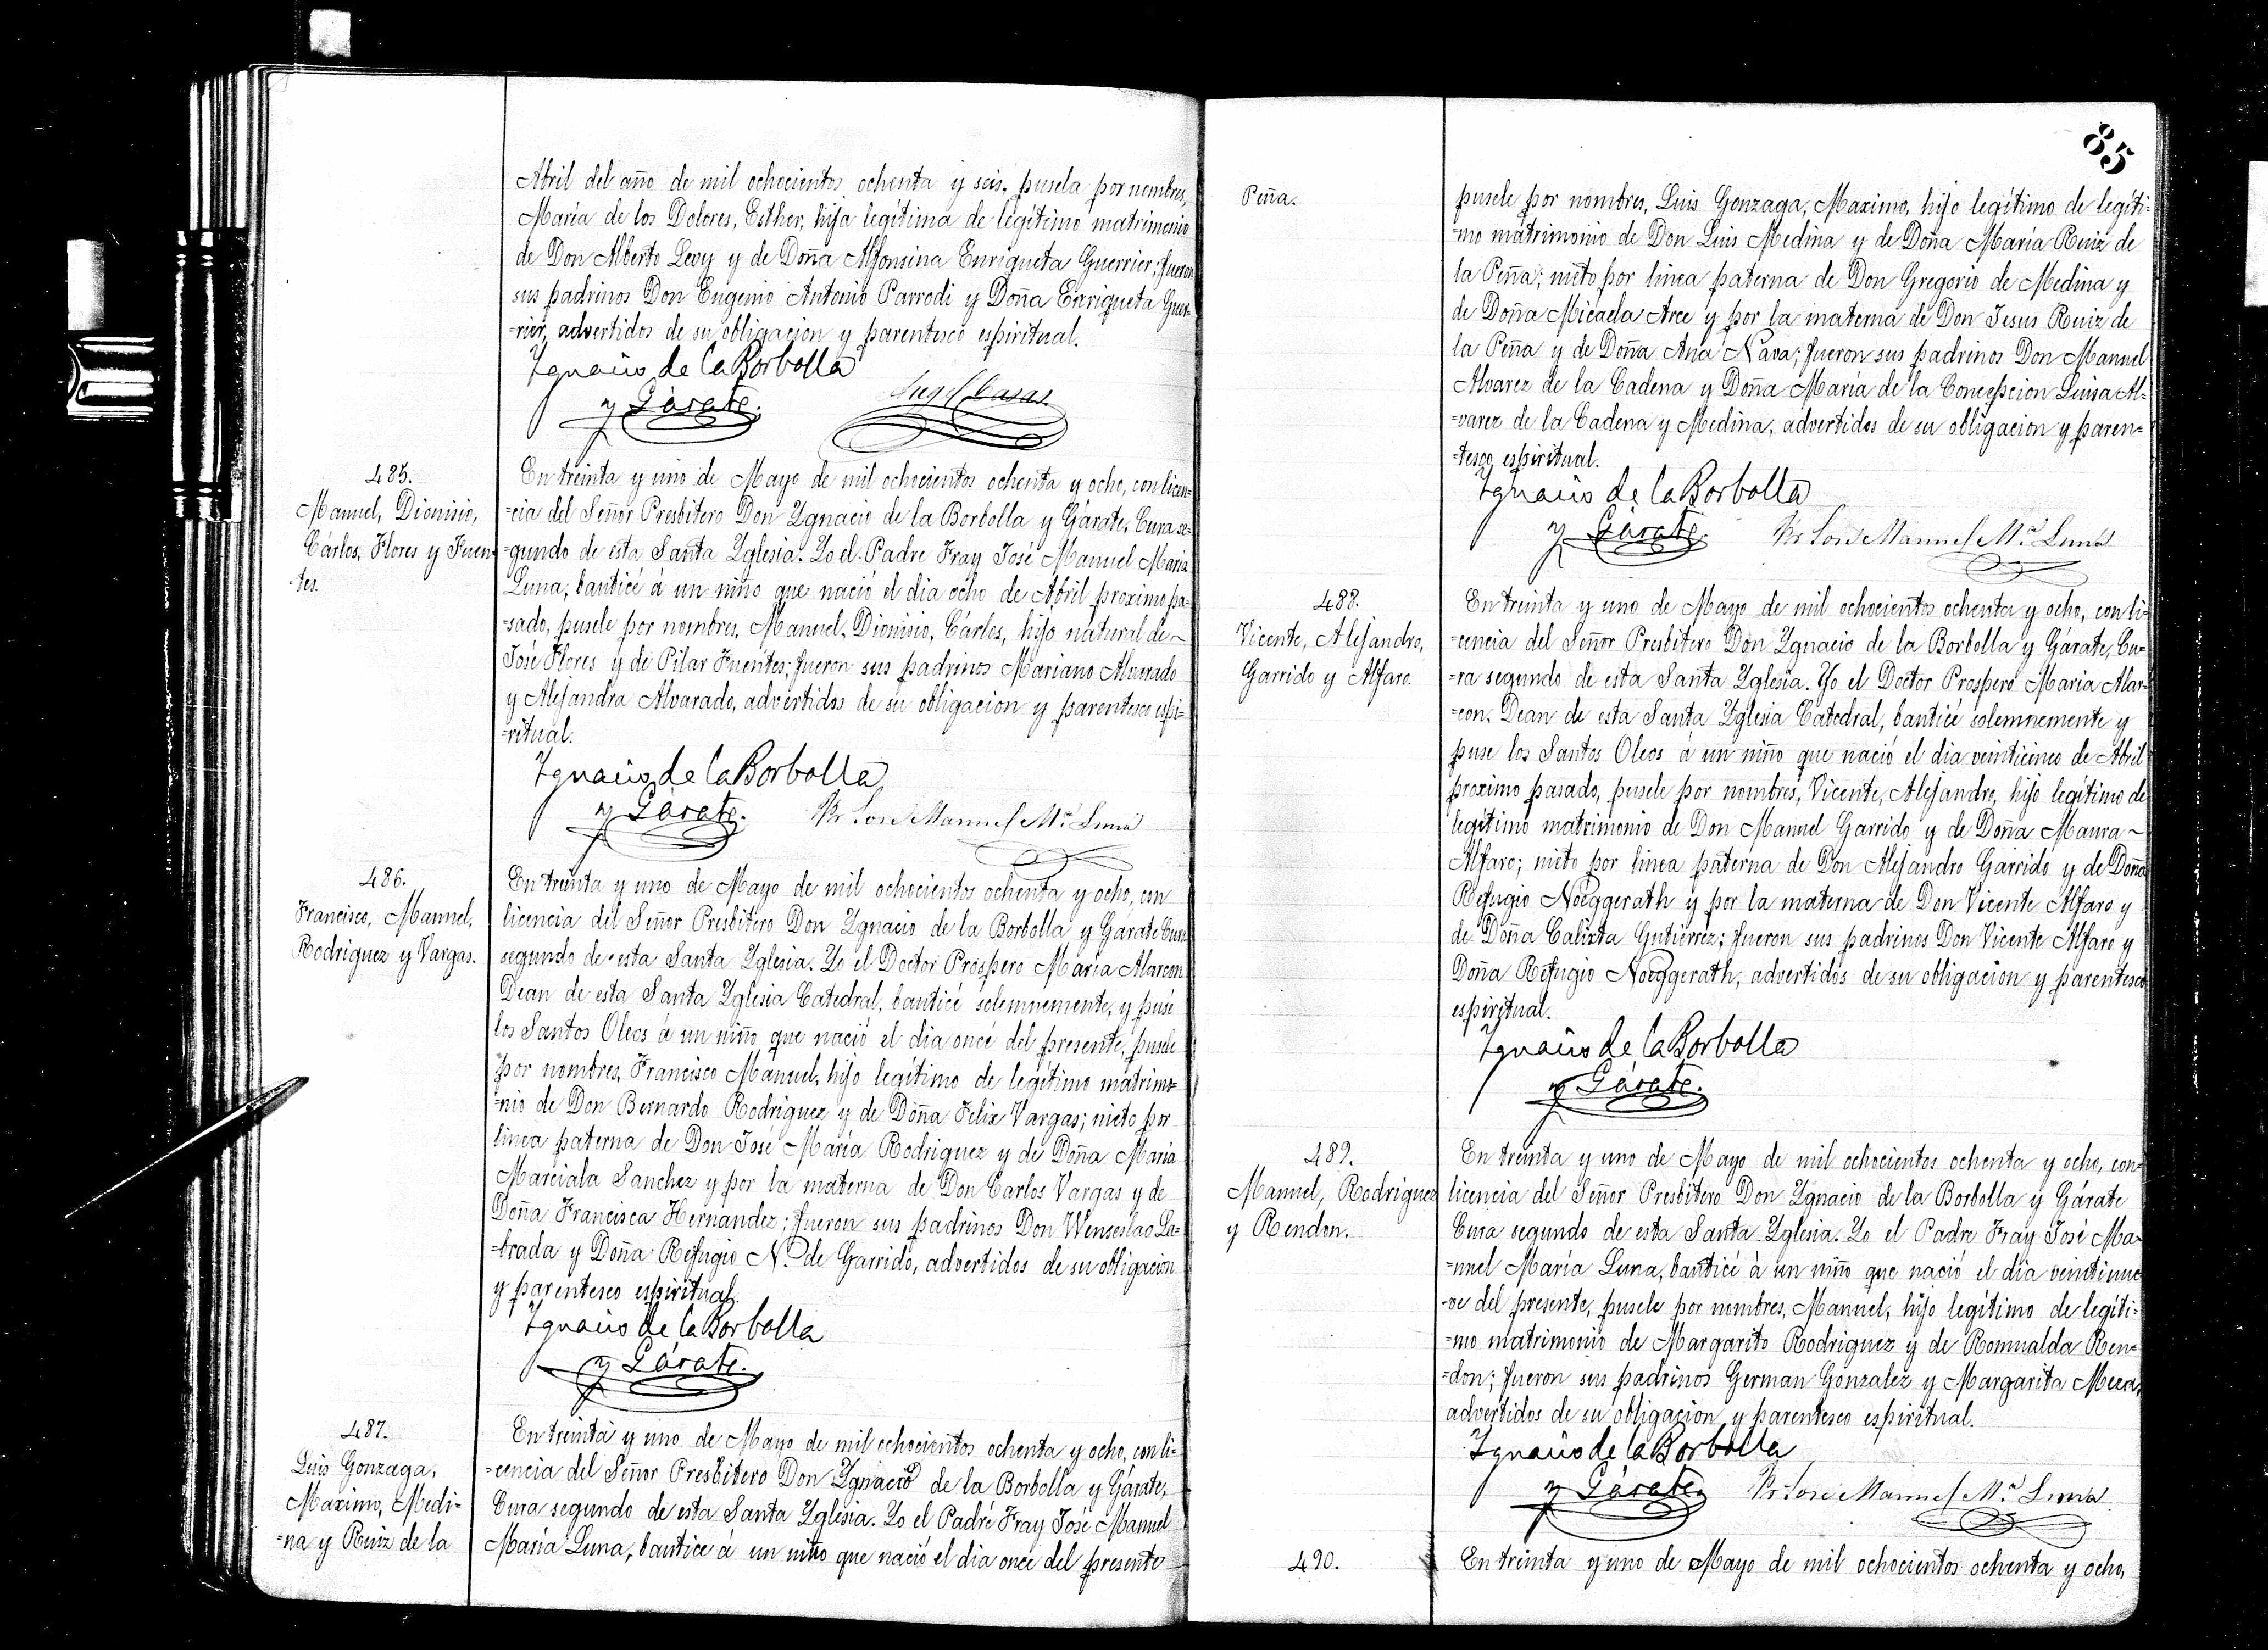 Abril del año de mil ochocientos ochenta y seis, pusela por nombres,
María de los Dolores, Esther, hija legítima de legítimo matrimonio
de Don Alberto Levy y de Doña Alfonsina Enriqueta Guerrier; fueron
sus padrinos Don Eugenio Antonio Parrodi y Doña Enriqueta Guer-
=rier, advertidos de su obligacion y parentesco espiritual.
Ignacio de la Borbolla
y Gárate.
Angel Casas.
485.
Manuel, Dionisio,
Cárlos, Flores y Fuen-
tes.
En treinta y uno de Mayo de mil ochocientos ochenta y ocho, con licen=
=cia del Señor Presbitero Don Ygnacio de la Borbolla y Gárate, Cura se-
=gundo de esta Santa Yglesia. Yo el Padre Fray José Manuel María
Luna, bauticé á un niño que nació el dia ocho de Abril proximo pa=
=sado, pusele por nombres, Manuel, Dionisio, Cárlos, hijo natural de ~
José Flores y de Pilar Fuentes; fueron sus padrinos Mariano Alvarado
y Alejandra Alvarado, advertidos de su obligacion y parentesco espi=
=ritual.
Ignacio de la Borbolla
y Gárate.
Fr. José Manuel Ma. Luna
486.
Francisco, Manuel,
Rodriguez y Vargas.
En treinta y uno de Mayo de mil ochocientos ochenta y ocho, con
licencia del Señor Presbitero Don Ygnacio de la Borbolla y Gárate Cura
segundo de esta Santa Yglesia. Yo el Doctor Prospero María Alarcon
Dean de esta Santa Yglesia Catedral, bauticé solemnemente, y puse
los Santos Oleos á un niño que nació el dia once del presente, pusele
por nombres, Francisco Manuel, hijo legítimo de legítimo matrimo=
=nio de Don Bernardo Rodriguez y de Doña Felix Vargas; nieto por
linea paterna de Don José María Rodriguez y de Doña María
Marciala Sanchez y por la materna de Don Carlos Vargas y de
Doña Francisca Hernandez; fueron sus padrinos Don Wenseslao La=
=brada y Doña Refugio N. de Garrido, advertidos de su obligacion
y parentesco espiritual.
Ignacio de la Borbolla
y Gárate.
487.
Luis Gonzaga,
Maximo, Medi=
=na y Ruiz de la
En treinta y uno de Mayo de mil ochocientos ochenta y ocho, con li=
=cencia del Señor Presbitero Don Ygnacio de la Borbolla y Gárate,
Cura segundo de esta Santa Yglesia. Yo el Padre Fray José Manuel
María Luna, bauticé á un niño que nació el dia once del presente
85
Peña.
pusele por nombres, Luis Gonzaga, Maximo, hijo legítimo de legíti=
=mo matrimonio de Don Luis Medina y de Doña María Ruiz de
la Peña; nieto por linea paterna de Don Gregorio de Medina y
de Doña Micaela Arce y por la materna de Don Jesus Ruiz de
la Peña y de Doña Ana Nava; fueron sus padrinos Don Manuel
Alvarez de la Cadena y Doña María de la Concepcion Luisa Al=
=varez de la Cadena y Medina, advertidos de su obligacion y paren=
=tesco espiritual.
Ignacio de la Borbolla
y Gárate.
Fr. José Manuel Ma. Luna
488.
Vicente, Alejandro,
Garrido y Alfaro.
En treinta y uno de Mayo de mil ochocientos ochenta y ocho, con li=
=cencia del Señor Presbitero Don Ygnacio de la Borbolla y Gárate, Cu=
=ra segundo de esta Santa Yglesia. Yo el Doctor Prospero María Alar=
=con, Dean de esta Santa Yglesia Catedral, bauticé solemnemente y
puse los Santos Oleos á un niño que nació el dia veinticinco de Abril
proximo pasado, pusele por nombres, Vicente, Alejandro, hijo legítimo de
legítimo matrimonio de Don Manuel Garrido y de Doña Maura ~
Alfaro; nieto por linea paterna de Don Alejandro Garrido y de Doña
Refugio Noeggerath y por la materna de Don Vicente Alfaro y
de Doña Calixta Gutiérrez; fueron sus padrinos Don Vicente Alfaro y
Doña Refugio Noeggerath, advertidos de su obligacion y parentesco
espiritual.
Ignacio de la Borbolla
y Gárate.
489.
Manuel, Rodriguez
y Rendon.
En treinta y uno de Mayo de mil ochocientos ochenta y ocho, con=
licencia del Señor Presbitero Don Ygnacio de la Borbolla y Gárate
Cura segundo de esta Santa Yglesia. Yo el Padre Fray José Ma=
=nuel María Luna, bauticé á un niño que nació el dia veintinue
=ve del presente, pusele por nombres, Manuel, hijo legítimo de legíti=
=mo matrimonio de Margarito Rodriguez y de Romualda Ren=
=don; fueron sus padrinos German Gonzalez y Margarita Meza,
advertidos de su obligacion y parentesco espiritual.
Ignacio de la Borbolla
y Gárate.
Fr. José Manuel Ma. Luna.
490.
En treinta y uno de Mayo de mil ochocientos ochenta y ocho,